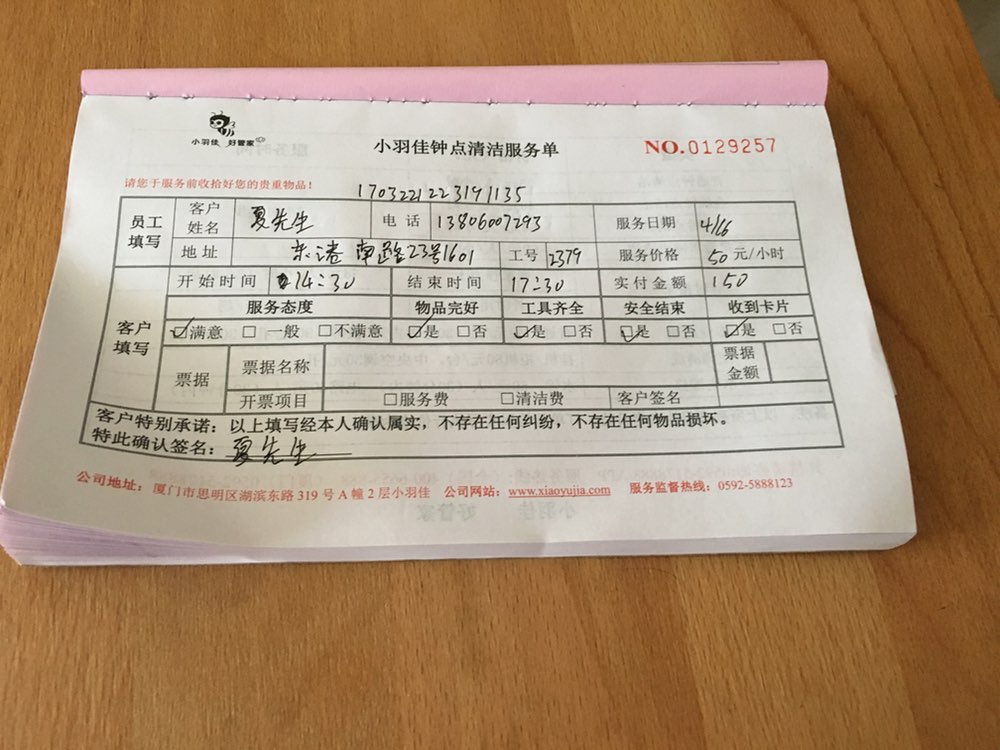 小羽佳 好管家
小羽佳钟点清洁服务单
NO.0129257
请您于服务前收拾好您的贵重物品！
1703221223191135
员工填写 客户姓名 夏先生 电话 13806007293 服务日期 4/16
地址 东港南路23号1601 工号 2379 服务价格 50 元/小时
客户填写 开始时间 14:30 结束时间 17:30 实付金额 150
服务态度 物品完好 工具齐全 安全结束 收到卡片
☑满意 □一般 □不满意 ☑是 □否 ☑是 □否 ☑是 □否 ☑是 □否
票据 票据名称 票据金额
开票项目 □服务费 □清洁费 客户签名
客户特别承诺：以上填写经本人确认属实，不存在任何纠纷，不存在任何物品损坏。
特此确认签名：夏先生
公司地址：厦门市思明区湖滨东路 319 号 A 幢 2 层小羽佳 公司网站：www.xiaoyujia.com 服务监督热线：0592-5888123